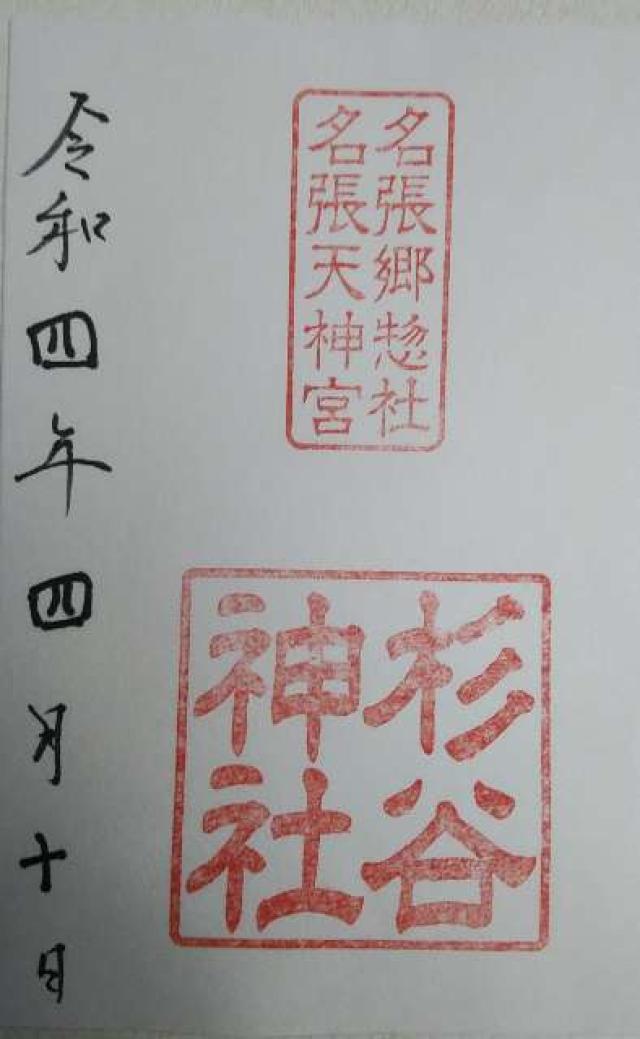 名張郷惣社
名張天神宮
杉谷
神社
令和四年四月十日